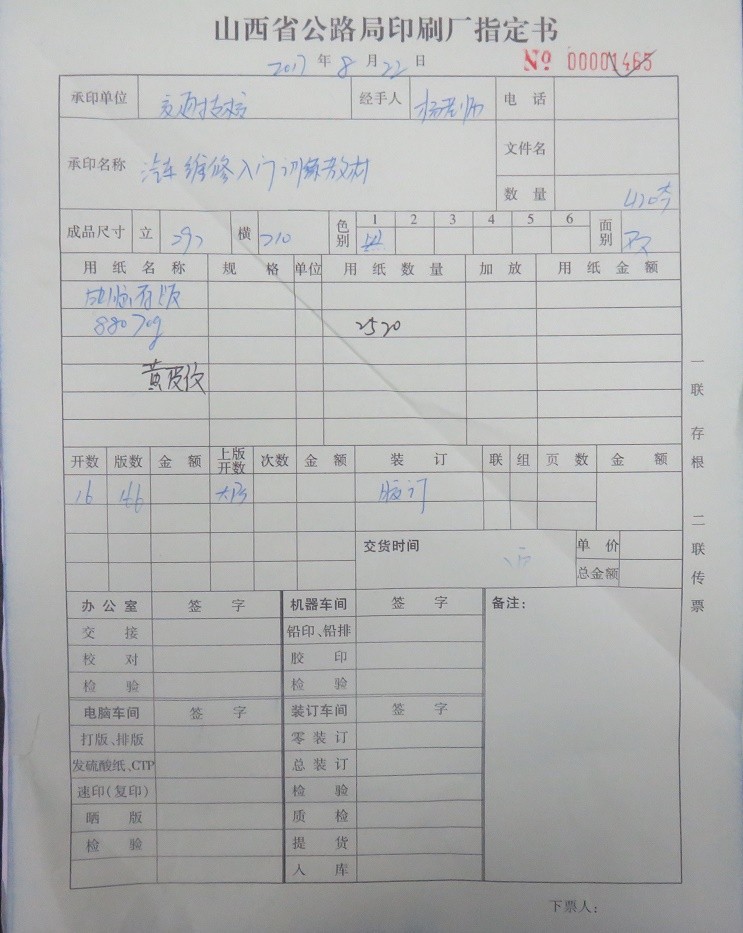 山西省公路局印刷厂指定书
2017 年 8 月 22 日 № 00001465
承印单位 交通技校 经手人 杨老师 电 话
承印名称 汽车维修入门训练教材 文件名
数 量 420本
成品尺寸 立 297 横 210 色别 1 2 3 4 5 6 面别 双
用 纸 名 称 规 格 单位 用 纸 数 量 加 放 用 纸 金 额
880 70g 2520
黄皮纹
开数 版数 金 额 上版开数 次数 金 额 装 订 联 组 页 数 金 额
16 146 胶订
交货时间 单 价
总金额
办 公 室 签 字 机器车间 签 字 备注:
交 接 铅印、铅排
校 对 胶 印
检 验 检 验
电脑车间 签 字 装订车间 签 字
打版、排版 零 装 订
发硫酸纸、CTP 总 装 订
速印(复印) 检 验
晒 版 质 检
检 验 提 货
入 库
下票人:
一联存根 二联传票